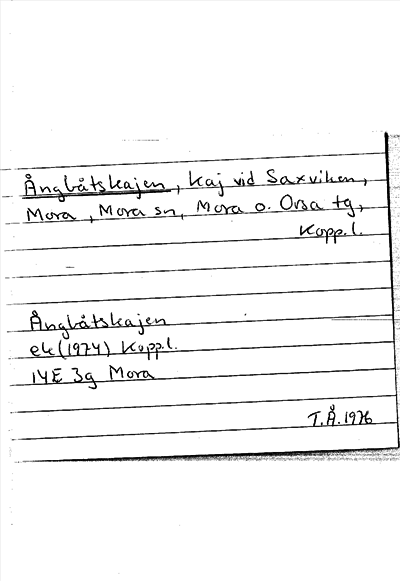 Ångbåtskajen, kaj vid Saxviken,
Mora, Mora sn, Mora o. Orsa tg,
Kopp.l.
Ångbåtskajen
ek (1974) Kopp.l.
14E 3g Mora
T.Å. 1976